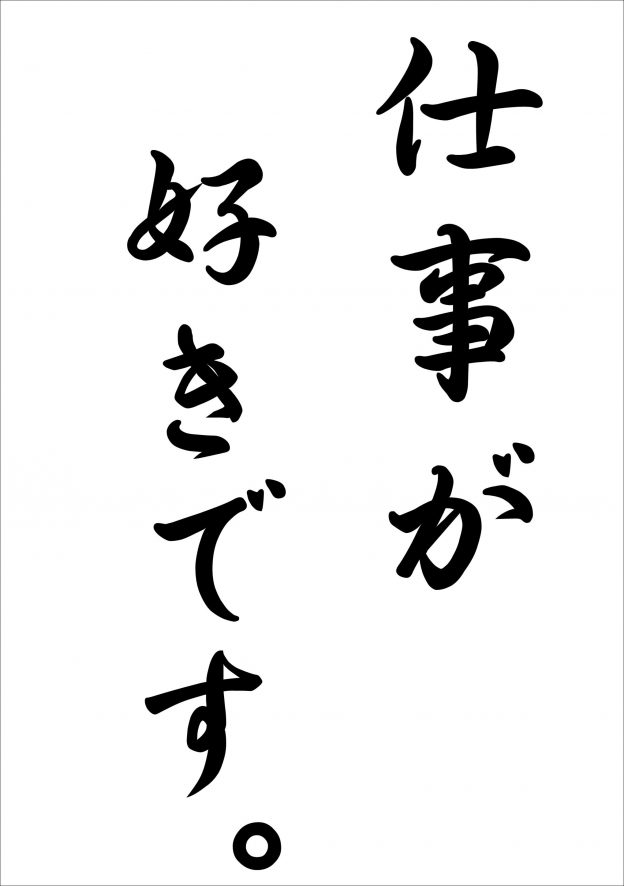 仕事が
好きです。